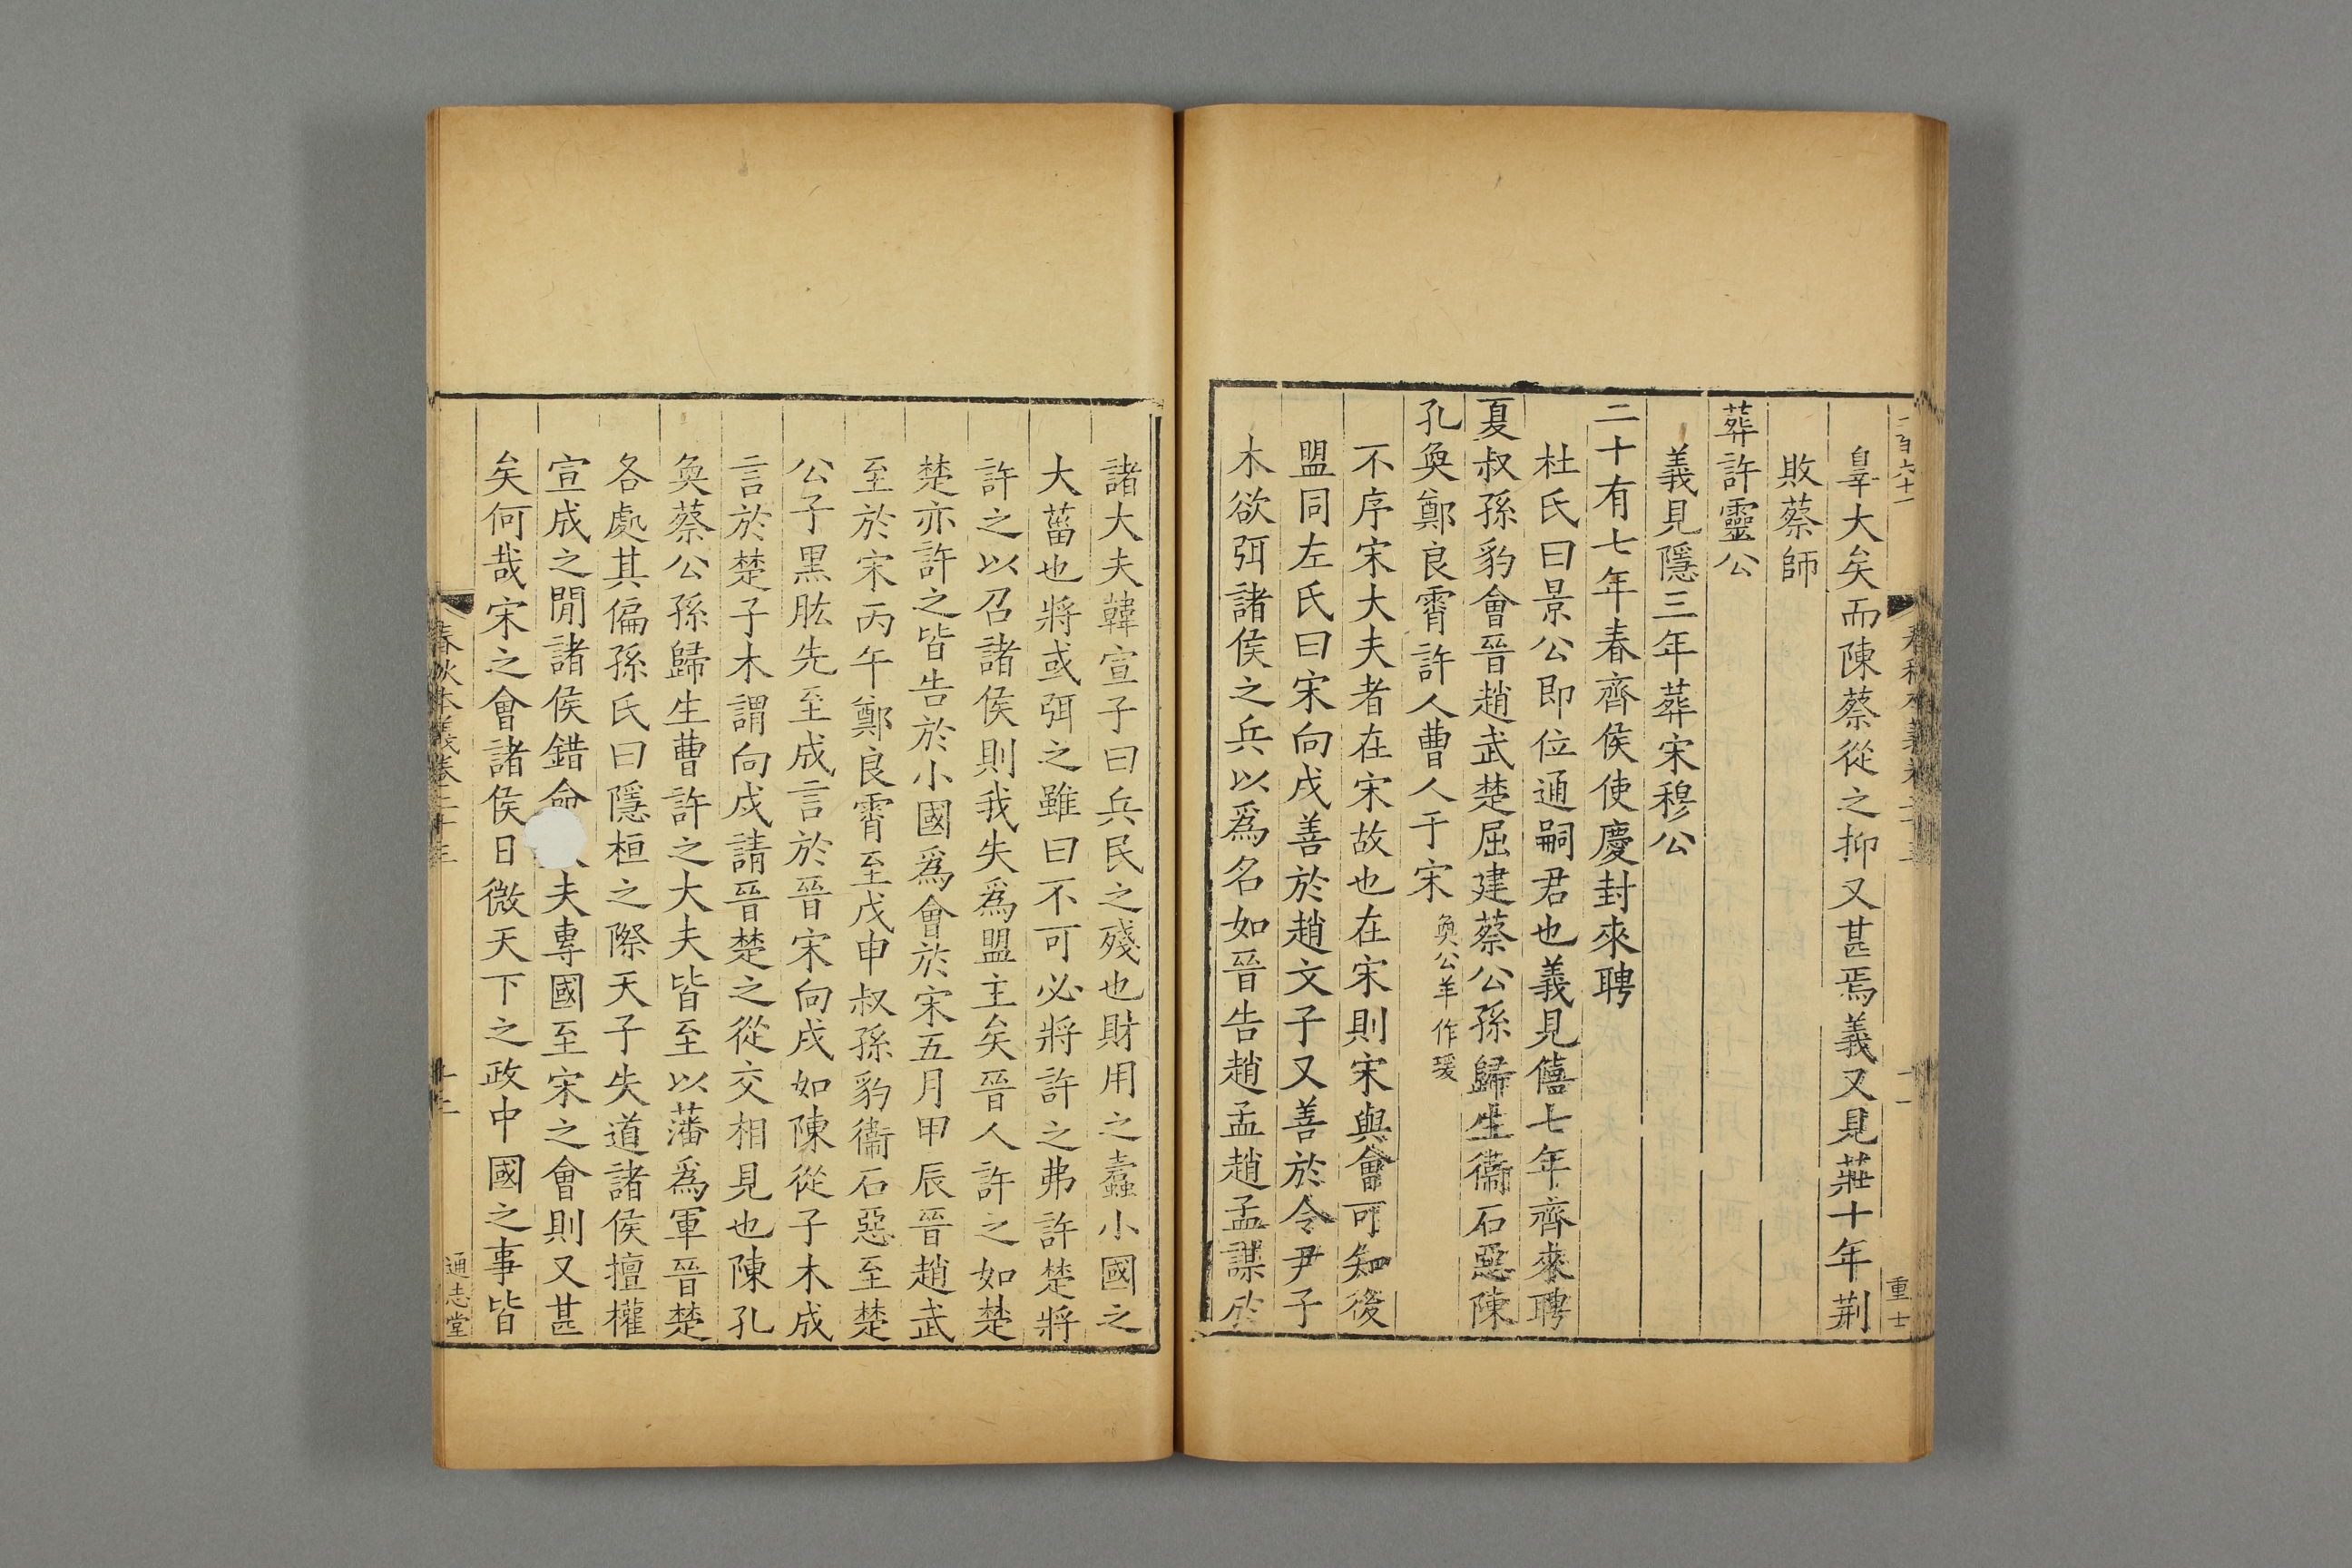 一百六十一
辠大矣而陳蔡從之抑又甚焉義又見莊十年荆
敗蔡師
葬許靈公
義見隱三年葬宋穆公
二十有七年春齊侯使慶封來聘
杜氏曰景公即位通嗣君也義見僖七年齊來聘
夏叔孫豹會晉趙武楚屈建蔡公孫歸生衞石惡陳
孔奐鄭良霄許人曹人于宋奐公羊作瑗
不序宋大夫者在宋故也在宋則宋與會可知後
盟同左氏曰宋向戌善於趙文子又善於令尹子
木欲弭諸侯之兵以爲名如晉告趙孟趙孟謀於
重士
諸大夫韓宣子曰兵民之殘也財用之蠹小國之
大菑也將或弭之雖曰不可必將許之弗許楚將
許之以召諸侯則我失爲盟主矣晉人許之如楚
楚亦許之皆告於小國爲會於宋五月甲辰晉趙武
至於宋丙午鄭良霄至戊申叔孫豹衞石惡至楚
公子黑肱先至成言於晉宋向戌如陳從子木成
言於楚子木謂向戌請晉楚之從交相見也陳孔
奐蔡公孫歸生曹許之大夫皆至以藩爲軍晉楚
各處其偏孫氏曰隱桓之際天子失道諸侯擅權
宣成之閒諸侯錯命夫專國至宋之會則又甚
矣何哉宋之會諸侯日微天下之政中國之事皆
春秋本義卷二十三
十二
通志堂